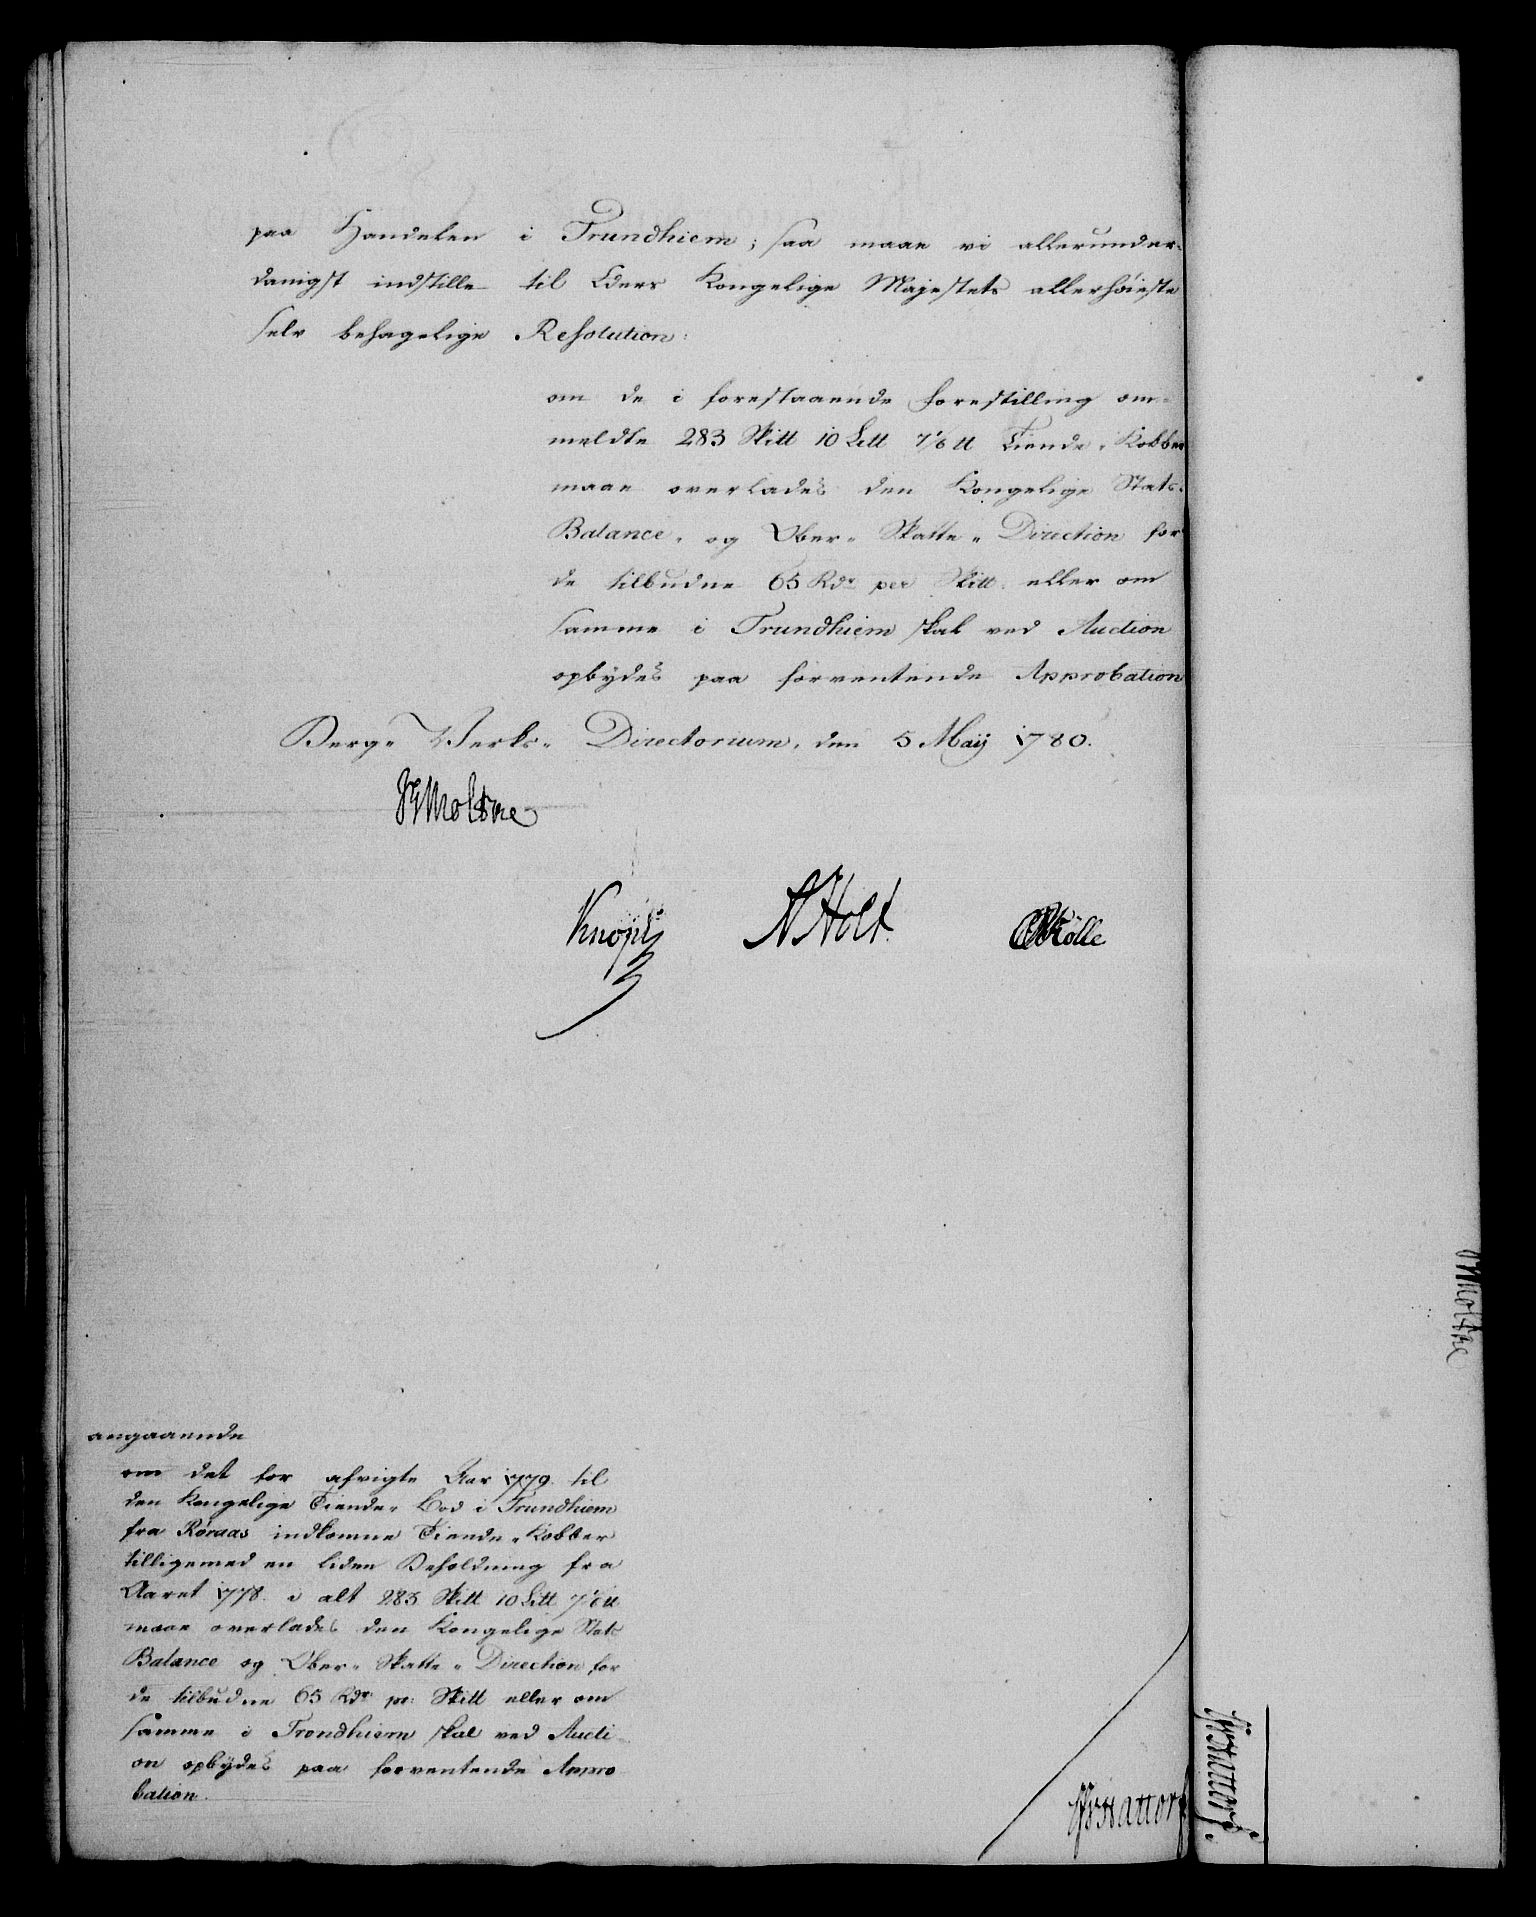 paa Handelen i Trundhiem; saa maae vi allerunder-
danigst indstille til Eders Kongelige Majestets allerhøieste
selv behagelige Resolution:
om de i forestaaende Forestilling om-
meldte 283 Sk℔ 10 L℔ 7 1/6 ℔ Tiende-Kobber
maae overlades den Kongelige Stats-
Balance- og Ober- Skatte- Direction for
de tilbudne 65 Rdr per Sk℔. eller om
samme i Trundhiem skal ved Auction
opbydes paa forventende Approbation
Berg- Verks- Directorium, den 5 Maij 1780.
Moltke
Knoph
N Holt
Kölle
angaaende
om det for afvigte Aar 1779. til
den Kongelige Tiende- Bod i Trundhiem
fra Røraas indkomne Tiende-Kobber
tilligemed en liden Beholdning fra
Aaret 1778. i alt 283 Sk℔ 10 L℔ 7 1/6 ℔
maae overlades den Kongelige Stats
Balance og Ober- Skatte- Direction for
de tilbudne 65 Rdr pr: Sk℔ eller om
samme i Trondhiem skal ved Aucti-
on opbydes paa forventende Appro
bation.
Moltke